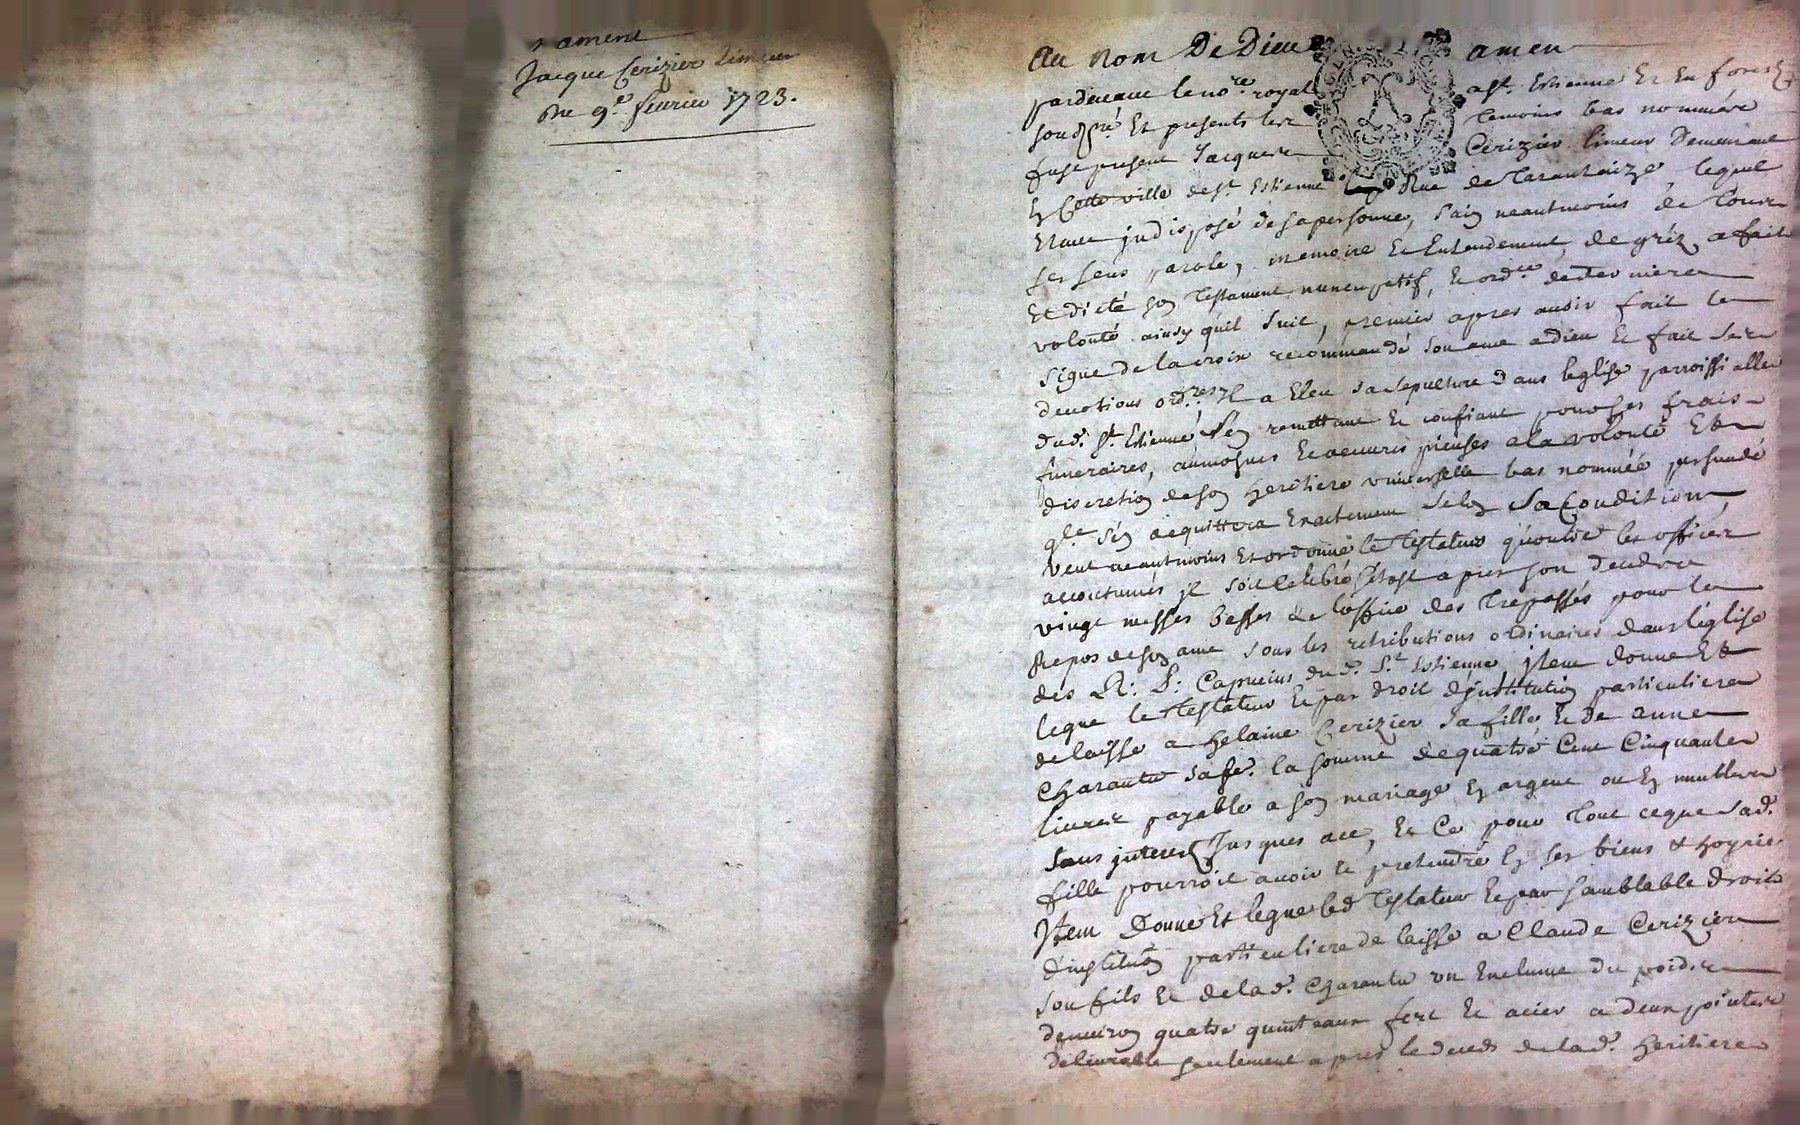 tament
Jacque Cerizier Limeur
Du 9e. fevrier 1723.
Au Nom De Dieu amen
pardevant le nore. royal a St. Estienne Et En forest
sousigné Et presents les Temoins bas nommés
fust present Jacques Cerizier limeur Demeurant
En Cette ville de St Estienne Rue de Tarantaize lequel
Etant jndisposé de sa personne, sain neantmoins de Tous
ses sens parole, memoire Et Entendement, de gréz a fait
Et dicté son Testament nuncupatif, Et ordce. de derniere
volonté ainsy quil suit, premier apres avoir fait le
signe de la croix recommandé son ame a dieu Et fait ses
devotions ordres. Il a Eleu sa sepulture dans leglise parroissialle
dud. St. Estienne sen remettant Et confiant pour ses frais
funeraires, aumosnes Et oeuvres pieuses a la volonté Et
discretion de son heritiere universelle bas nommée persuadé
qle. s'en acquittera Exactement selon sa Condition,
veut neantmoins Et ordonne le Testateur qu'outre les offices
accoutumés jl soit Celebré sitost apres son deceds
vingt messes basses de l'office des Trepassés pour le
Repos de son ame sous les retributions ordinaires dans léglise
des R: P: Capucins dud. St. Estienne, jtem donne Et
legue le Testateur Et par droit d'jnstitution particuliere
delaisse a Helaine Cerizier sa fille Et de anne
Charantu sa fe. la somme de quatre Cent Cinquante
livres payable a son mariage En argent ou En meubles
sans jnterest Jusques a ce, Et Ce pour Tout ce que sad.
fille pourroit avoir Et pretendre En ses biens & hoyrie
Jtem Donne Et legue led Testateur Et par samblable droit
d'institution particuliere delaisse a Claude Cerizier
son fils Et de lad. Charantu un Enclume du poids
denviron quatre quinteaux fert Et acier a deux pointes
delivrable seulement apres le deceds de lad. heritiere